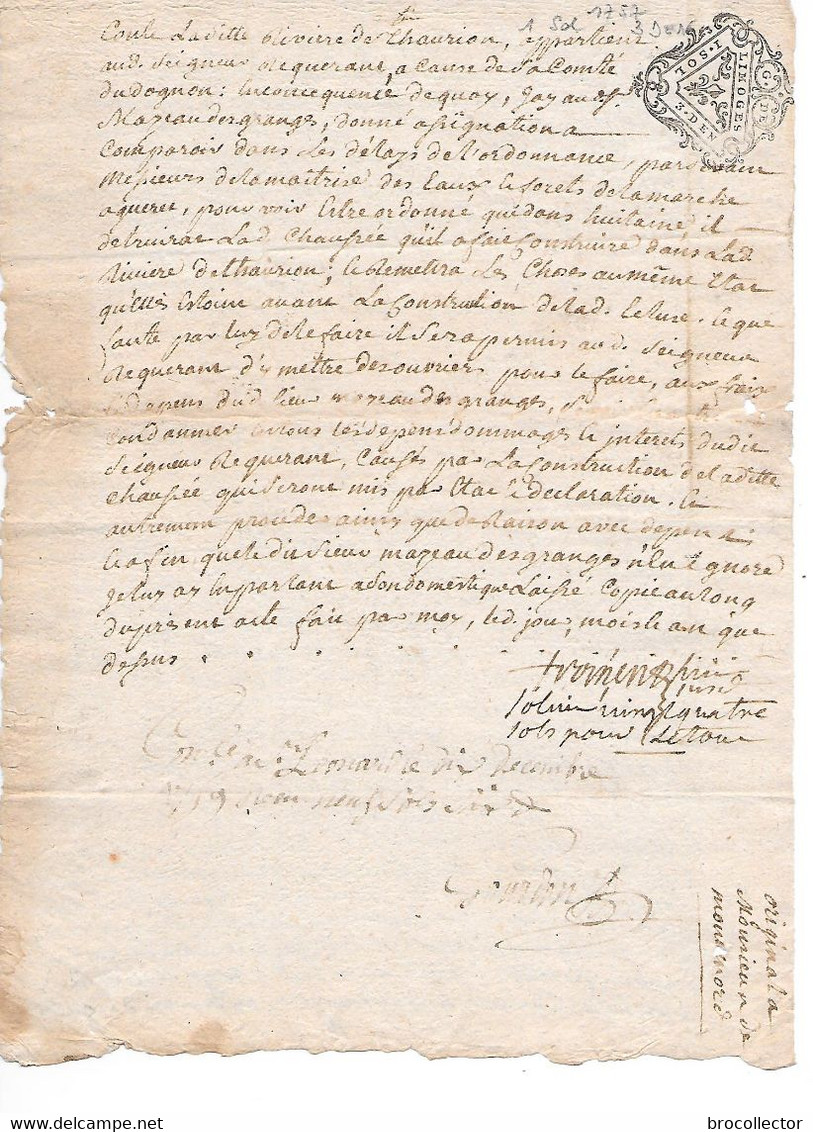 1 Sol 1757
3 Den
G. DE
LIMOGES
I. SOL
3. DEN
Coule Laditte Riviere de Thaurion, appartient
aud. Seigneur Requerant, a cause de sa Comté
du dognon: en consequence de quoy, Jay aud. Sr.
Mazeau des granges, donné assignation a
Comparoir dans les délays de l'ordonnance, pardevant
Messieurs de la maitrise des Eaux et forets de la marche
a gueret, pour voir Estre ordonné que dans huitaine, il
detruira Lad Chaussée qu'il a fait Construire dans Lad.
Riviere de thaurion; et Remettra Les Choses au même Etat
qu'elles Estoint avant La Construction de lad. Ecluse. et que
faute par luy de le faire il sera permis aud. Seigneur
Requerant d'y mettre des ouvriers pour le faire, aux frais
et depens dud. sieur mazeau des granges,
Condanner en tous les depens dommages et interets dudit
Seigneur Requerant, Causés par La Construction de laditte
Chaussée qui seront mis par Etat et declaration. et
autrement proceder ainsy que de Raison avec depens
et afin que le dit sieur mazeau des granges n'En Ignore
Je luy ay En parlant a son domestique Laissé Copie au long
du present acte fait par moy, led. jour, mois et an que
dessus . . . . . . .
vingt quatre
sols pour
Conlé a St Leonard le dix decembre
neuf sols six d
original a
Monsieur de
brocollector
delcampe.net